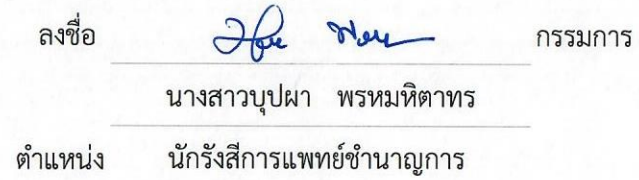 ลงชื่อ กรรมการ
นางสาวบุปผา พรหมหิตาทร
ตำแหน่ง นักรังสีการแพทย์ชำนาญการ